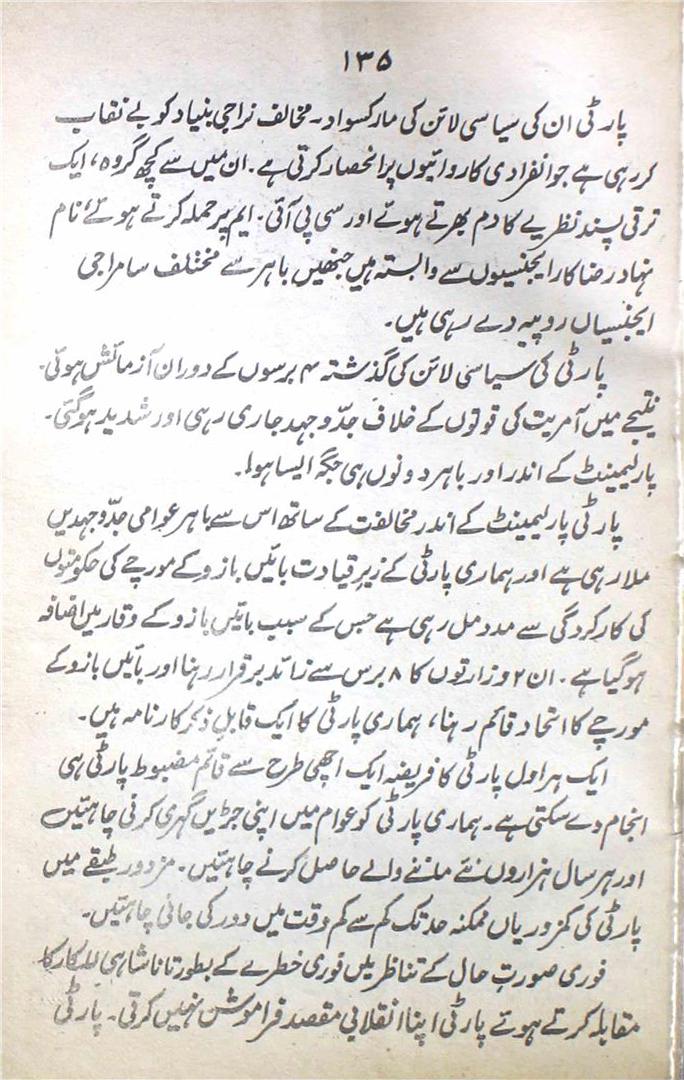 ۱۳۵
پارٹی ان کی سیاسی لائن کی مارکسواد۔ مخالف نراجی بنیاد کو بے نقاب
کر رہی ہے جو انفرادی کاروائیوں پر انحصار کرتی ہے۔ ان میں سے کچھ گروہ، ایک
ترقی پسند نظریے کا دم بھرتے ہوئے اور سی پی آئی۔ ایم پر حملہ کرتے ہوئے، نام
نہاد رضا کار ایجنسیوں سے وابستہ ہیں جنھیں باہر سے مختلف سامراجی
ایجنسیاں روپیہ دے رہی ہیں۔
پارٹی کی سیاسی لائن کی گذشتہ ۴ برسوں کے دوران آزمائش ہوئی۔
نتیجے میں آمریت کی قوتوں کے خلاف جدّوجہد جاری رہی اور شدید ہوگئی۔
پارلیمینٹ کے اندر اور باہر دونوں ہی جگہ ایسا ہوا۔
پارٹی پارلیمینٹ کے اندر مخالفت کے ساتھ اس سے باہر عوامی جدّوجہدیں
ملا رہی ہے اور ہماری پارٹی کے زیرِ قیادت بائیں بازو کے مورچے کی حکومتوں
کی کارکردگی سے مدد مل رہی ہے جس کے سبب بائیں بازو کے وقار میں اضافہ
ہوگیا ہے۔ ان ۲ وزارتوں کا ۸ برس سے زائد برقرار رہنا اور بائیں بازو کے
مورچے کا اتحاد قائم رہنا، ہماری پارٹی کا ایک قابلِ ذکر کارنامہ ہیں۔
ایک ہراول پارٹی کا فریضہ ایک اچھی طرح سے قائم مضبوط پارٹی ہی
انجام دے سکتی ہے۔ ہماری پارٹی کو عوام میں اپنی جڑیں گہری کرنی چاہئیں
اور ہر سال ہزاروں نئے ماننے والے حاصل کرنے چاہئیں۔ مزدور طبقے میں
پارٹی کی کمزوریاں ممکنہ حد تک کم سے کم وقت میں دور کی جانی چاہئیں۔
فوری صورتِ حال کے تناظر میں فوری خطرے کے بطور تاناشاہی للکار کا
مقابلہ کرتے ہوئے پارٹی اپنا انقلابی مقصد فراموش نہیں کرتی۔ پارٹی